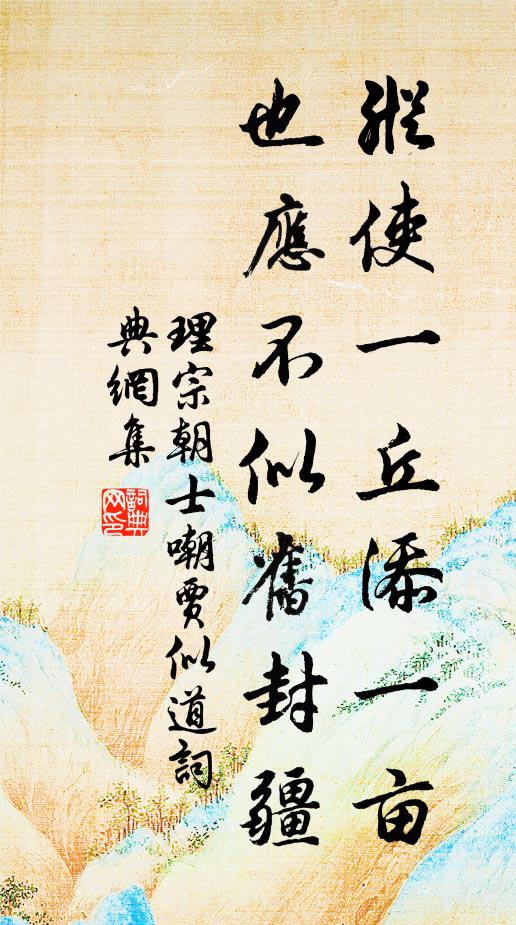 縱使一丘添一亩
也應不似舊封疆
理宗朝士嘲賈似道詞
典網集
詞典網印